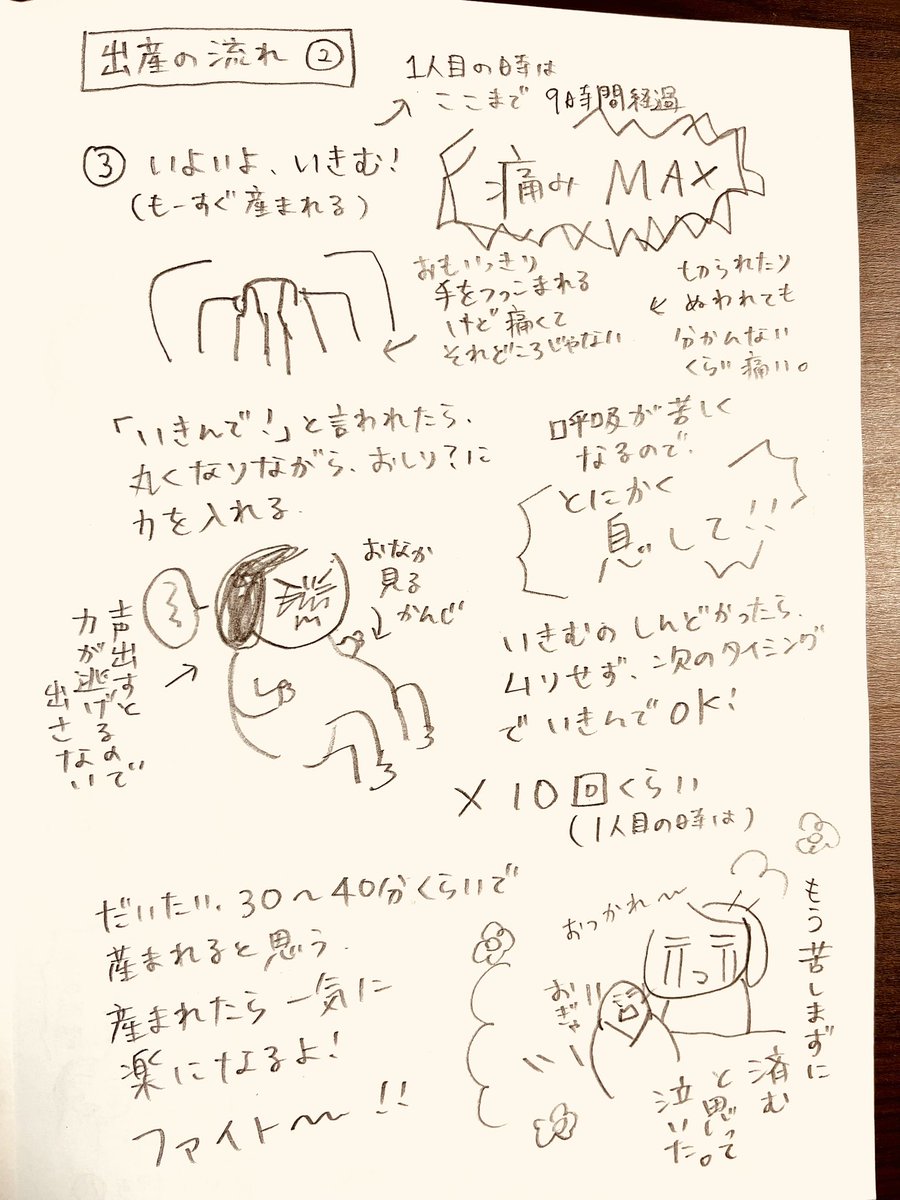 出産の流れ ②
1人目の時は
ここまで 9時間経過
③ いよいよ、いきむ!
(もーすぐ産まれる)
痛み MAX
おもいっきり
手をつっこまれる
けど痛くて
それどころじゃない
切られたり
ぬわれても
分かんない
くらい痛い。
「いきんで!」と言われたら、
丸くなりながら、おしり?に
力を入れる.
呼吸が苦しく
なるので、
とにかく
息して!!
おなか
見る
かんじ
声出すと
力が逃げるので
出さないで
いきむのしんどかったら、
ムリせず、次のタイミング
でいきんでOK!
× 10回くらい
(1人目の時は)
だいたい、30〜40分くらいで
産まれると思う.
産まれたら一気に
楽になるよ!
ファイト〜!!
おつかれ〜
おぎゃー
もう苦しまずに
済む
と思って
泣いた。